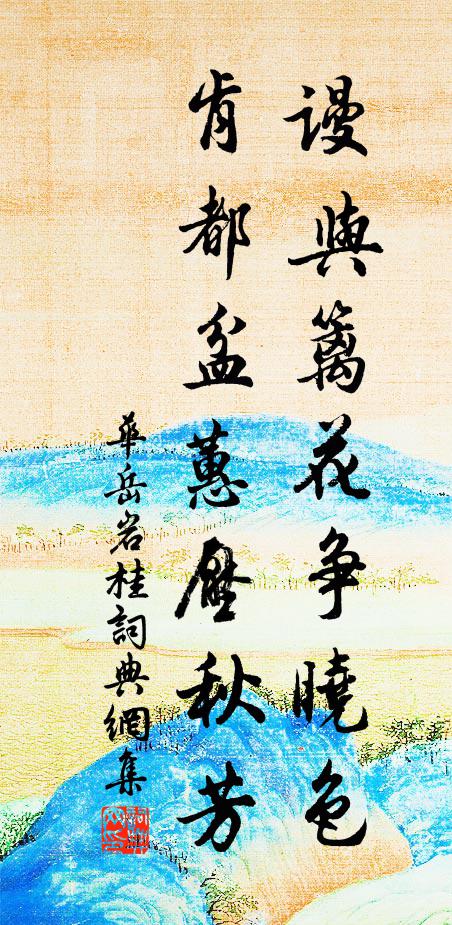 谩與篱花争曉色
肯都盆蕙壓秋芳
華岳岩桂詞典網集